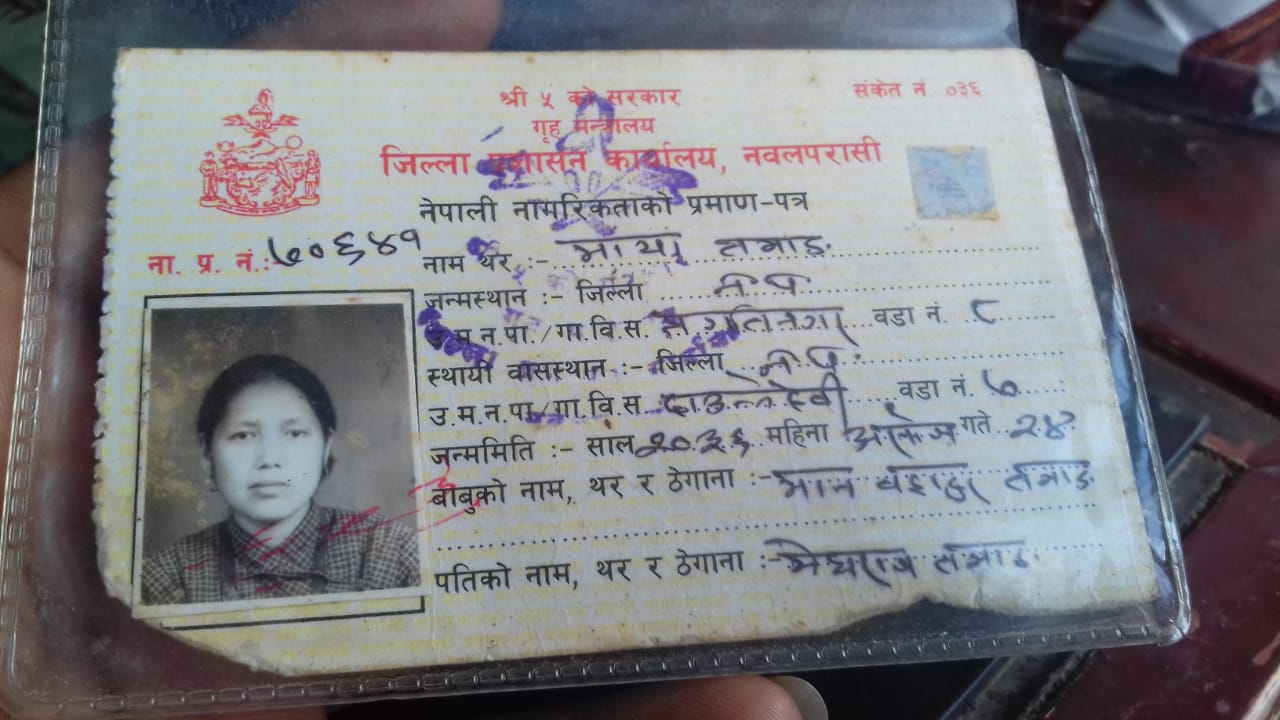 श्री ५ को सरकार
संकेत नं. ०३६
गृह मन्त्रालय
जिल्ला प्रशासन कार्यालय, नवलपरासी
नेपाली नागरिकताको प्रमाण-पत्र
ना. प्र. नं.: ७०६४१
नाम थर :- माया तामाङ
जन्मस्थान :- जिल्ला न.प.
उ.म.न.पा./गा.वि.स. प्रगतिनगर वडा नं. ८
स्थायी वासस्थान :- जिल्ला न.प.
उ.म.न.पा./गा.वि.स. दाउन्नेदेवी वडा नं. ७
जन्ममिति :- साल २०३६ महिना असोज गते २४
बाबुको नाम, थर र ठेगाना :- मान बहादुर तामाङ
पतिको नाम, थर र ठेगाना :- मेघराज तामाङ